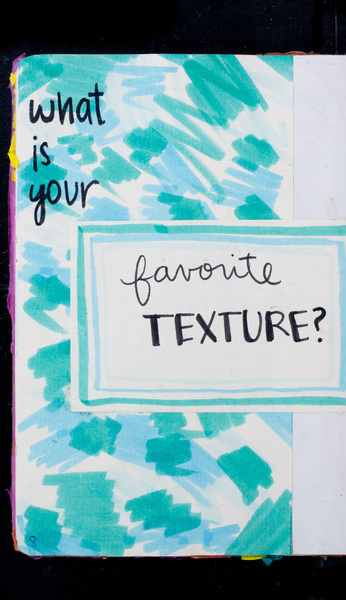 what
is
your
favorite
TEXTURE?
8